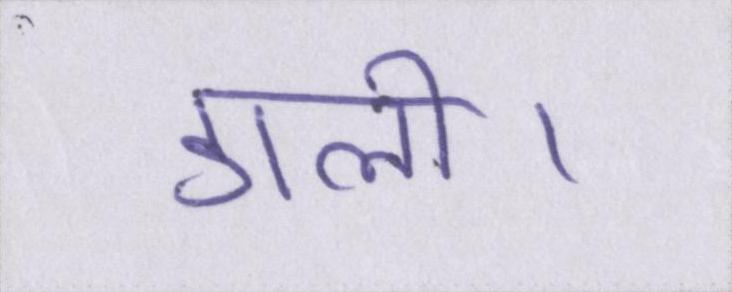 डाली।